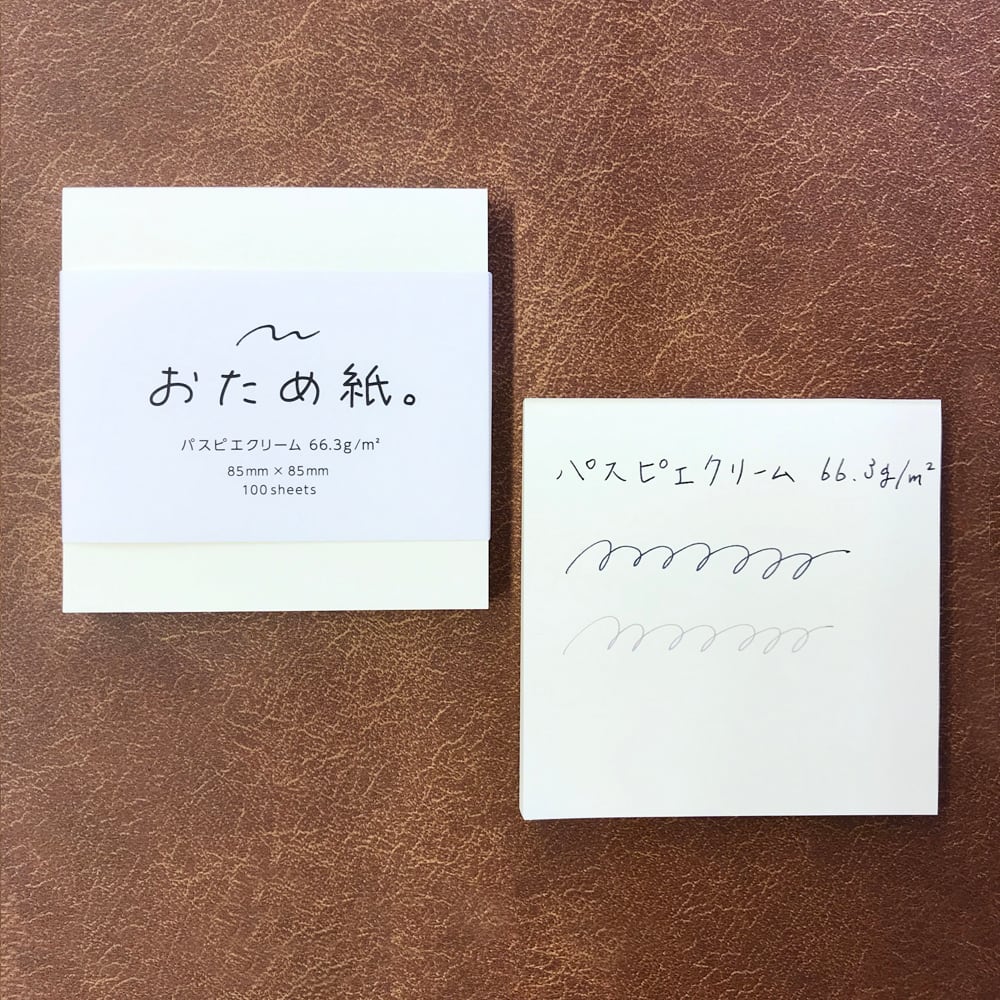 おため紙。
パスピエクリーム 66.3g/m²
85mm × 85mm
100sheets
パスピエクリーム 66.3g/m²